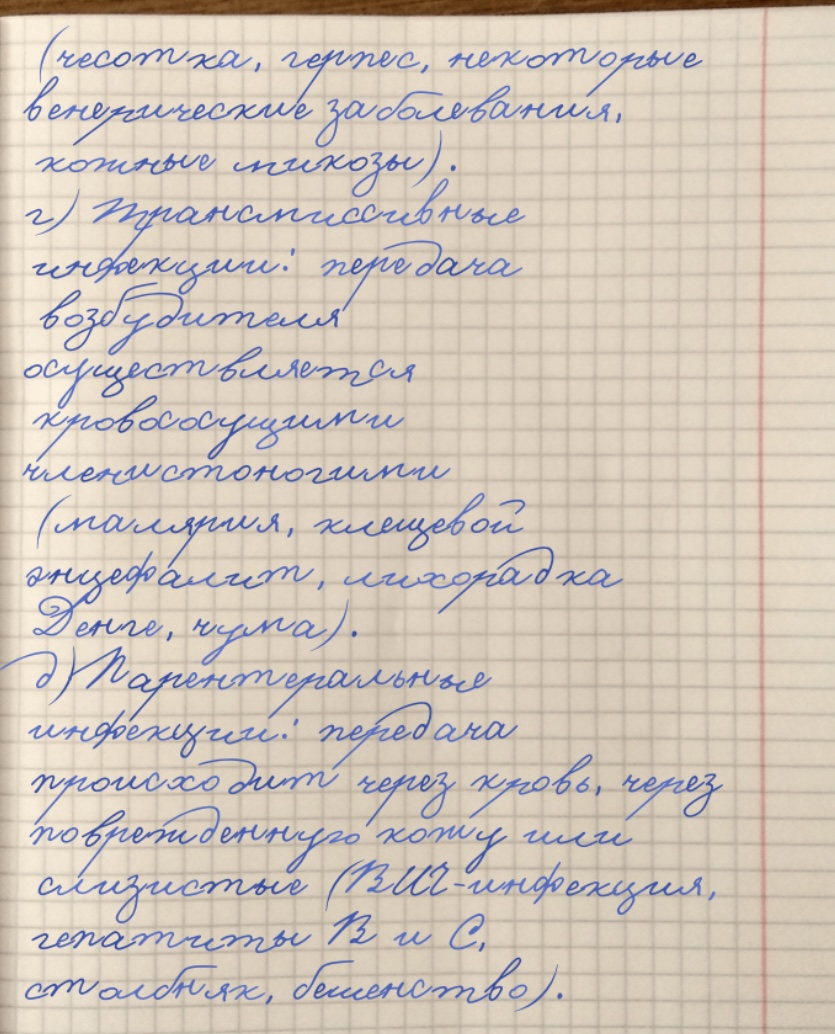 (чесотка, герпес, некоторые
венерические заболевания,
кожные микозы).
г) Трансмиссивные
инфекции: передача
возбудителя
осуществляется
кровососущими
членистоногими
(малярия, клещевой
энцефалит, лихорадка
Денге, чума).
д) Парентеральные
инфекции: передача
происходит через кровь, через
поврежденную кожу или
слизистые (ВИЧ-инфекция,
гепатиты В и С,
столбняк, бешенство).